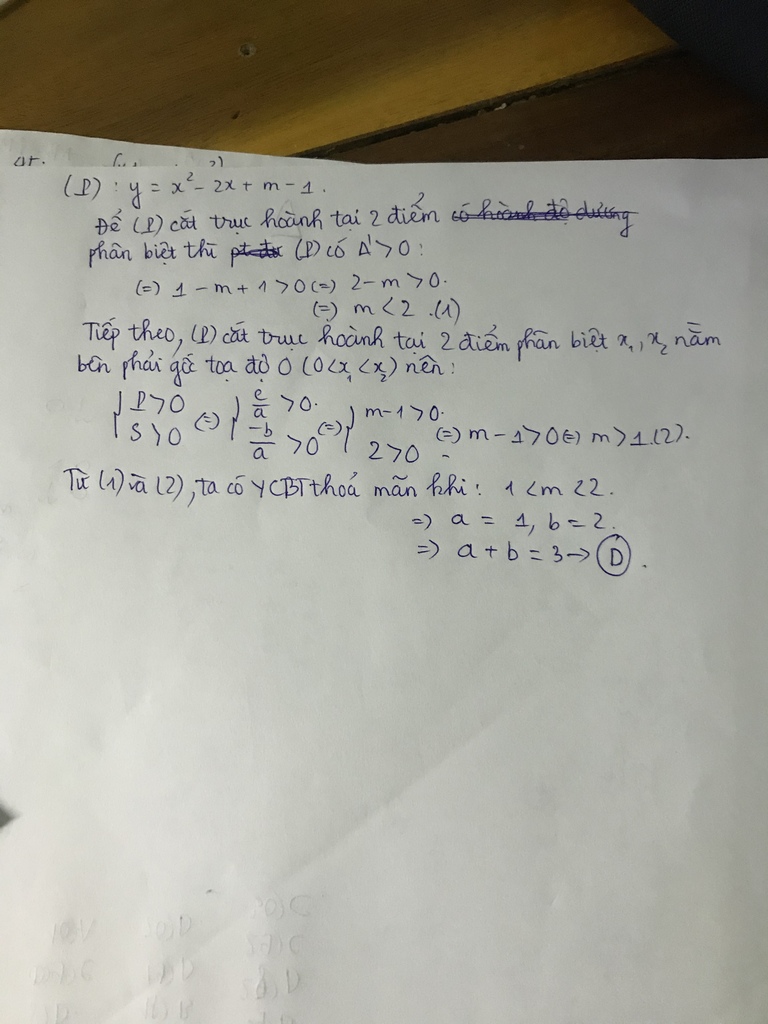 (P): y = x² - 2x + m - 1.
Để (P) cắt trục hoành tại 2 điểm có hoành độ dương
phân biệt thì (P) có Δ' > 0:
(=) 1 - m + 1 > 0 (=) 2 - m > 0.
(=) m < 2 .(1)
Tiếp theo, (P) cắt trục hoành tại 2 điểm phân biệt x₁, x₂ nằm
bên phải gốc toạ độ O (0 < x₁ < x₂) nên:
{ P > 0 (=) { c/a > 0. (=) { m - 1 > 0.
{ S > 0 { -b/a > 0 { 2 > 0 (=) m - 1 > 0 (=) m > 1.(2).
Từ (1) và (2), ta có YCBT thoả mãn khi: 1 < m < 2.
=) a = 1, b = 2.
=) a + b = 3 → D .